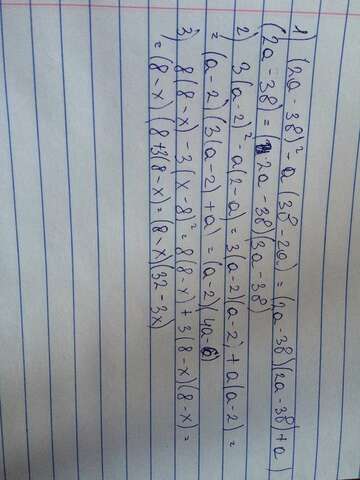 1) (2a - 3b)² - a (3b - 2a) = (2a - 3b)(2a - 3b) + a)
(2a - 3b) = (2a - 3b)(3a - 3b)
2) 3(a-2)² - a(2-a) = 3(a-2)(a-2) + a(a-2) =
= (a-2)(3(a-2)+a) = (a-2)(4a-6)
3) 8(8-x) - 3(x-8² = 8(8-x) + 3(8-x)(8-x) =
= (8-x)(8+3(8-x) = (8-x)(32-3x)